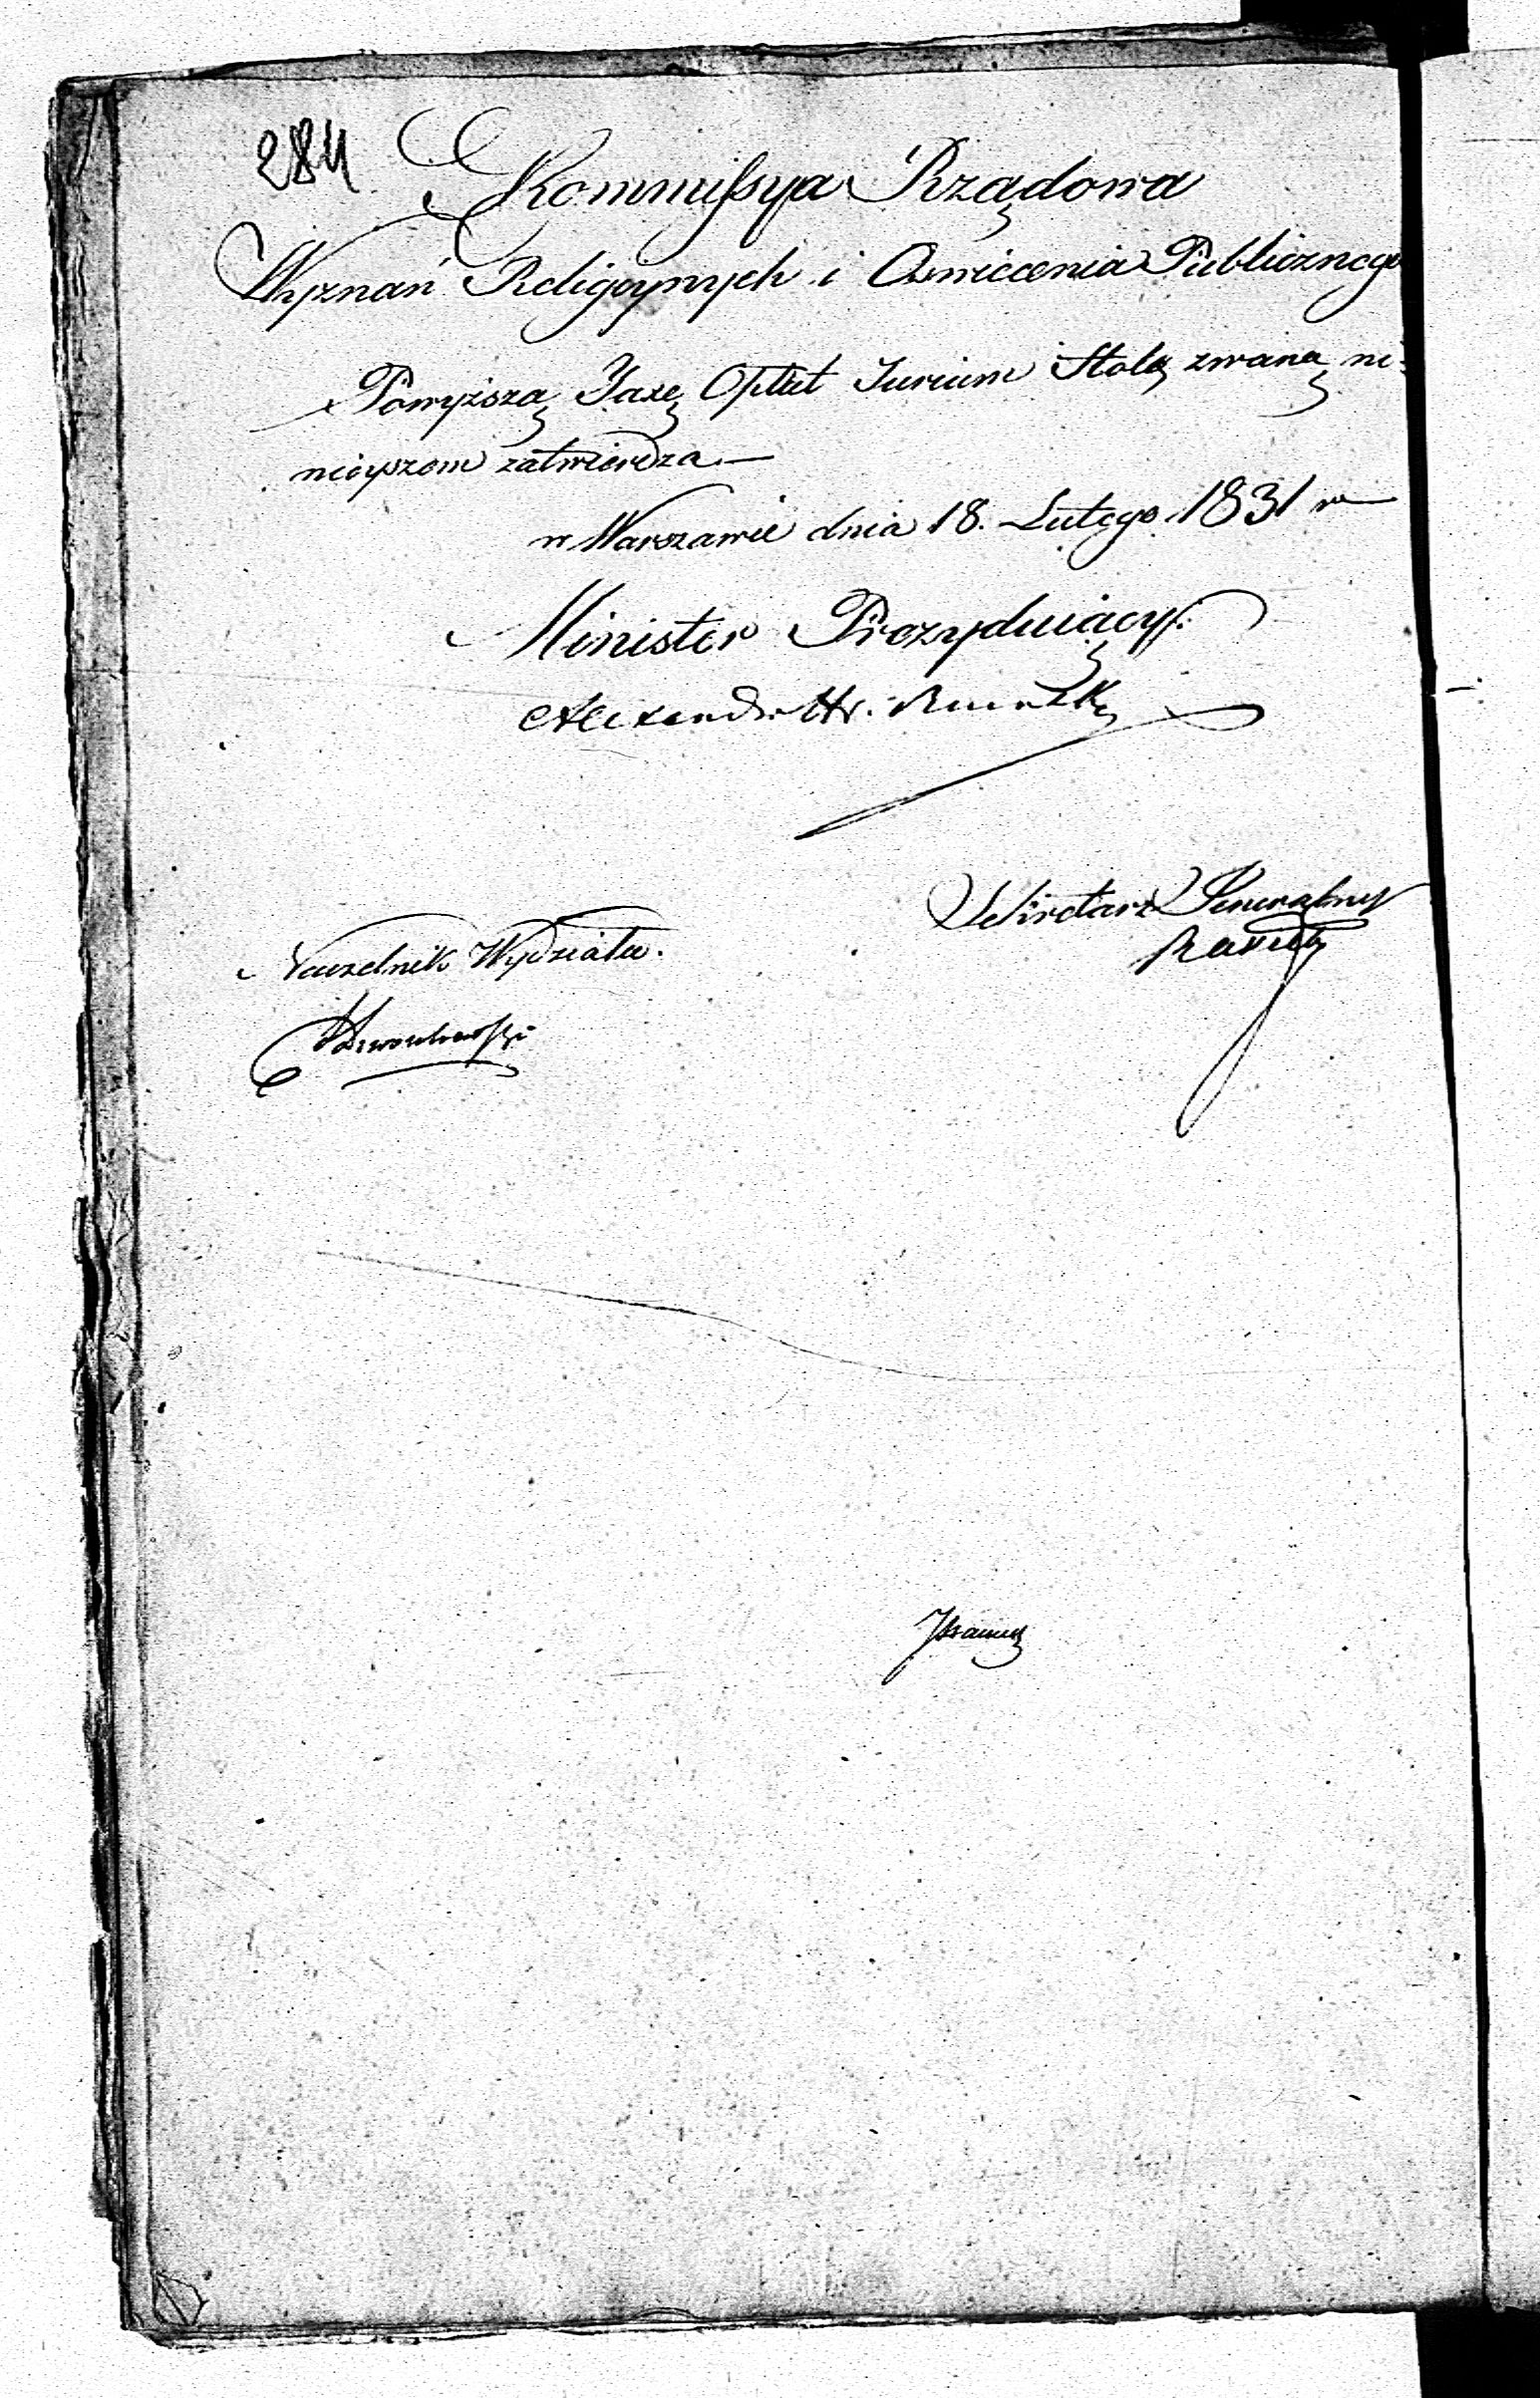 284
Kommissya Rządowa
Wyznań Religiynych i Oswiecenia Publicznego
Powyższą Taxę Opłat Iurium Stolę zwaną ni:
nieyszem zatwierdza.—
w Warszawie dnia 18. Lutego 1831 r
Minister Prezyduiący
Alexander Hr.
Sekretarz Jeneralny
Naczelnik Wydziału.